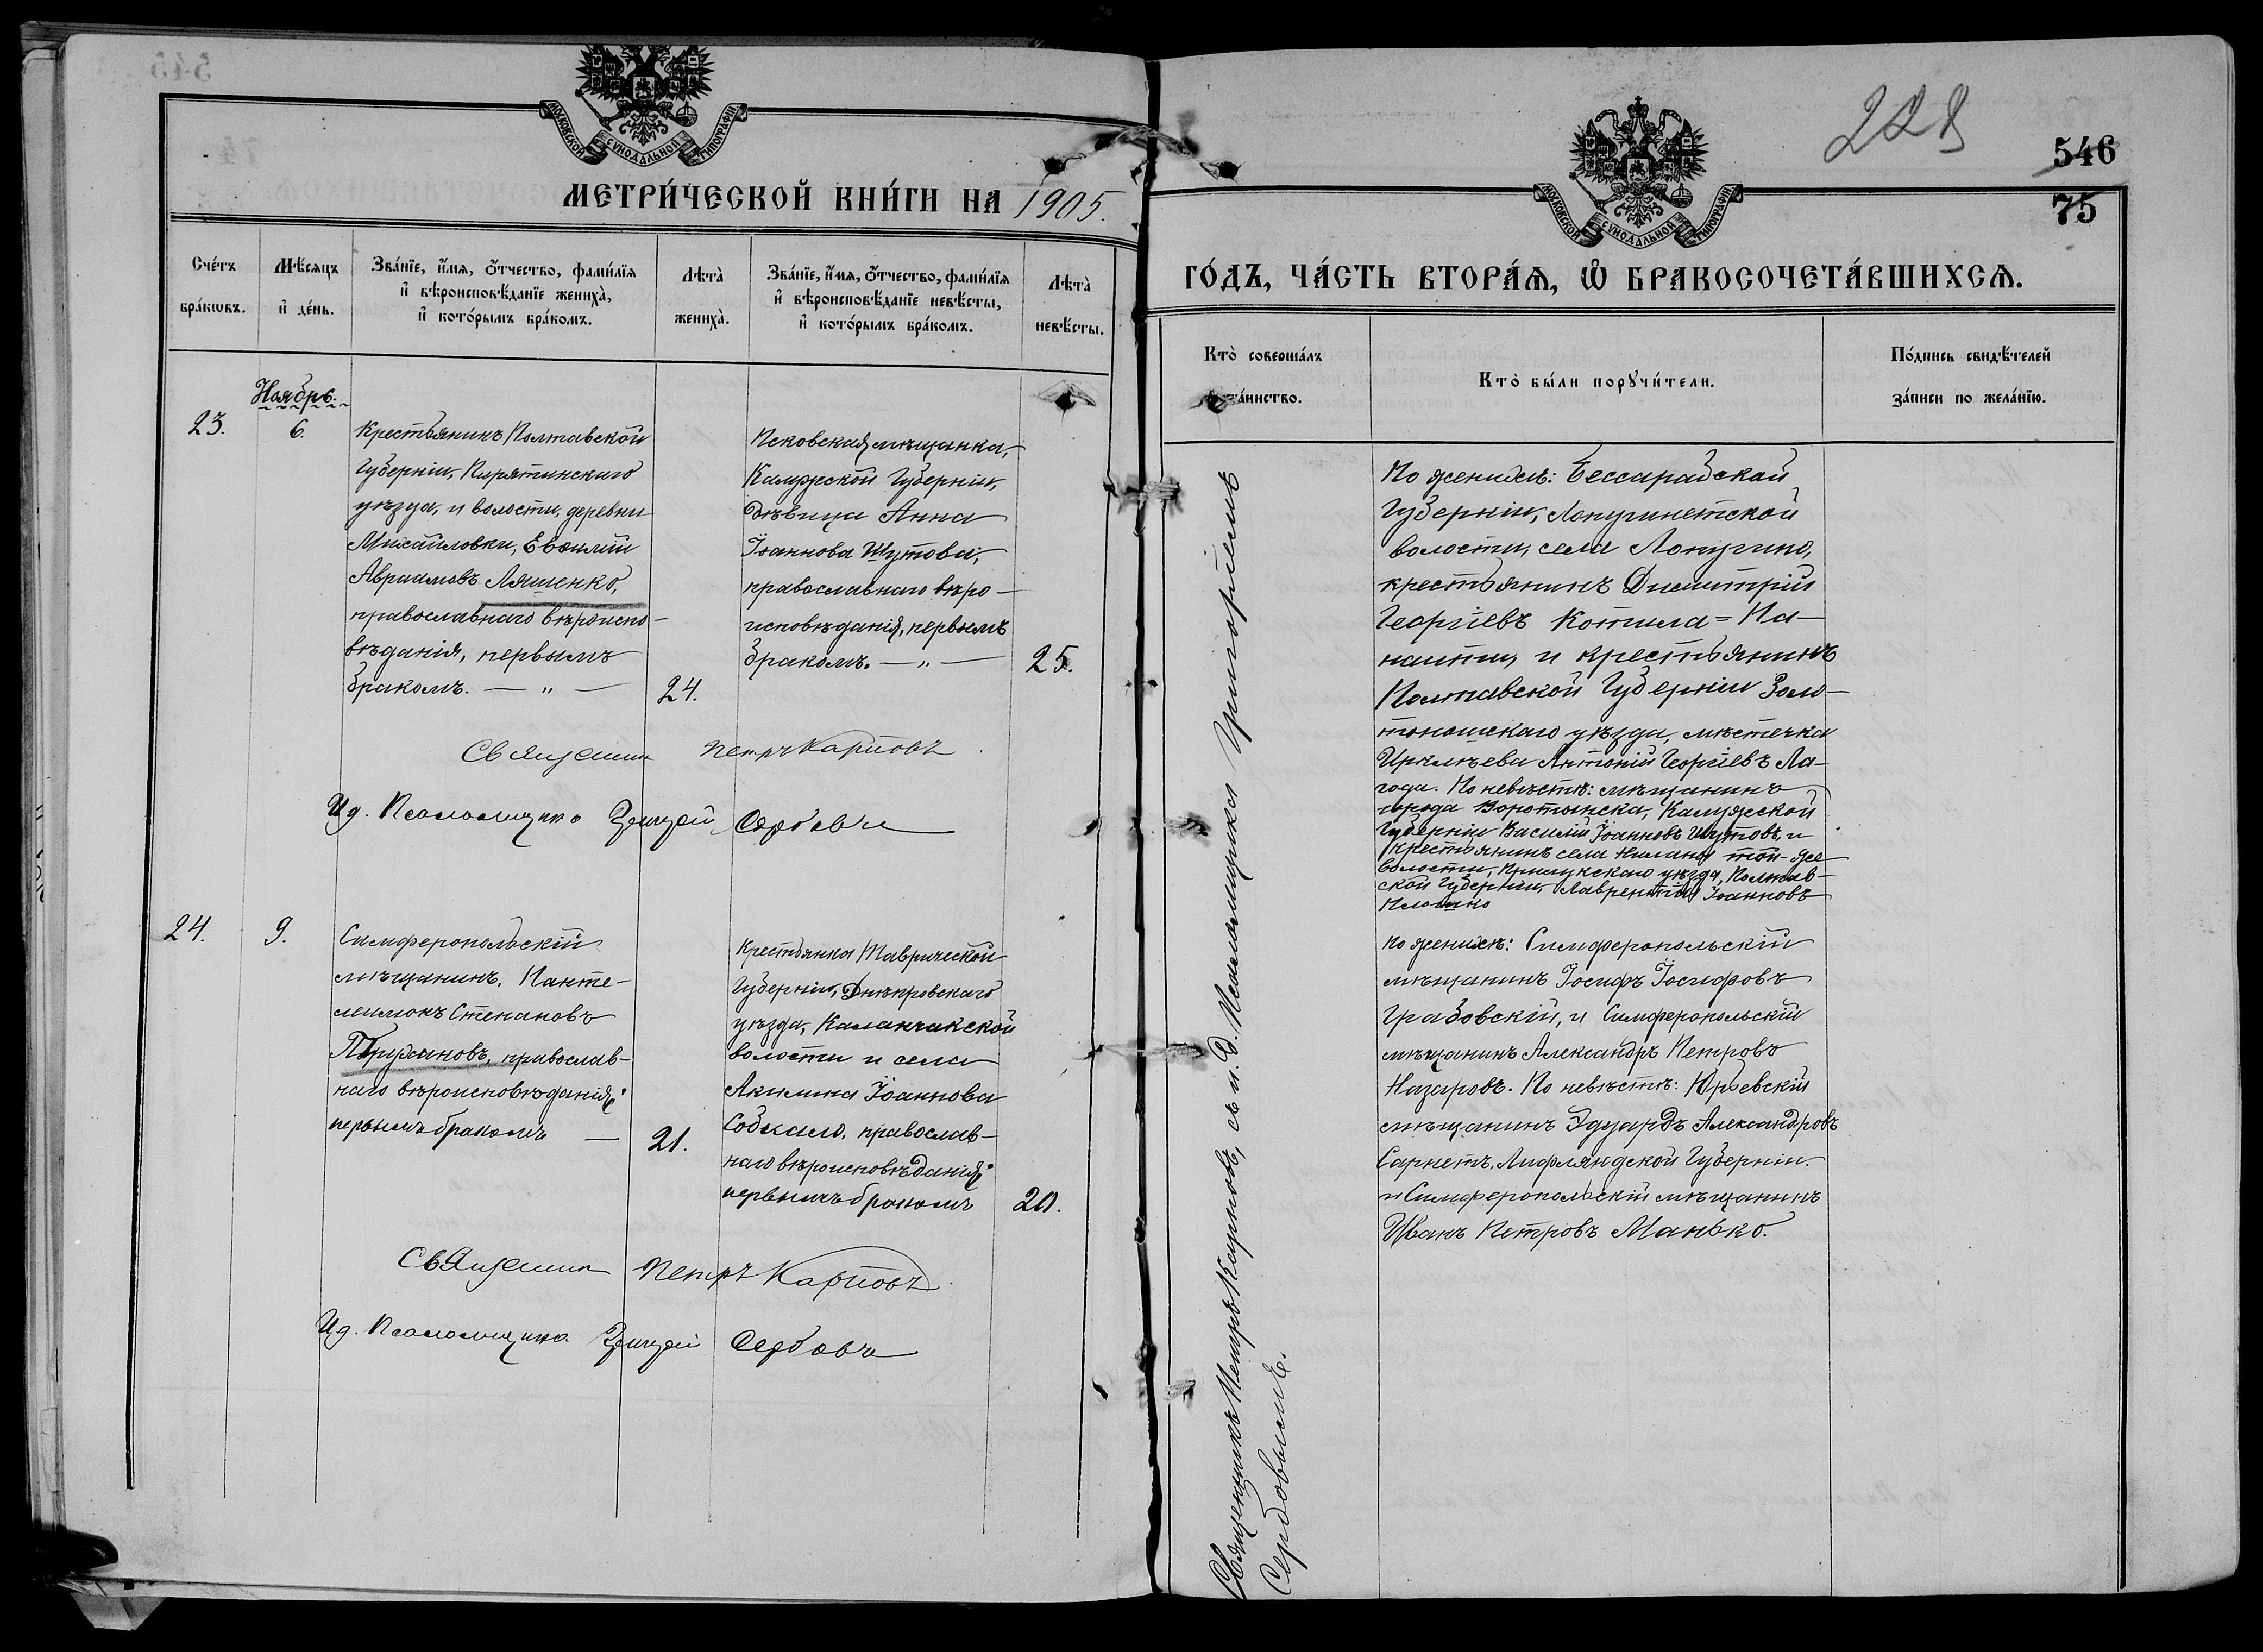 МОСКОВСКОЙ СѴНОДАЛЬНОЙ ТИПОГРАФІИ
МЕТРИ́ЧЕСКОЙ КНИ́ГИ НА 1905.
Сче́тъ бра́кѡвъ.
Мѣ́сяцъ и҆ де́нь.
Зва́нїе, и҆́мѧ, ѻ҆́тчество, фами́лїѧ
и҆ вѣроисповѣ́данїе жениха̀,
и҆ кото́рымъ бра́комъ.
Лѣта̀ жениха̀.
Зва́нїе, и҆́мѧ, ѻ҆́тчество, фами́лїѧ
и҆ вѣроисповѣ́данїе невѣ́сты,
и҆ кото́рымъ бра́комъ.
Лѣта̀ невѣ́сты.
Ноябрь.
23.
6.
Крестьянинъ Полтавской
Губерніи, Пирятинскаго
уѣзда, и волости, деревни
Михайловки,
Авраамовъ Ляшенко,
православнаго вѣроиспо-
вѣданія, первымъ
бракомъ. — „ —
24.
мѣщанка,
Калужской Губерніи,
дѣвица Анна
Іоаннова Шутова,
православнаго вѣро-
исповѣданія, первымъ
бракомъ. — „ —
25.
Священникъ Петръ Карповъ
И д. Псаломщика Григорій Сербовъ
24.
9.
Симферопольскій
мѣщанинъ, Панте-
леимонъ Степановъ
православ-
наго вѣроисповѣданія,
первымъ бракомъ —
21.
Крестьянка Таврической
Губерніи, Днѣпровскаго
уѣзда, Каланчакской
волости и села
Акилина Іоаннова
православ-
наго вѣроисповѣданія,
первымъ бракомъ
20.
Священникъ Петръ Карповъ
И д. Псаломщика Григорій Сербовъ
228
546
МОСКОВСКОЙ СѴНОДАЛЬНОЙ ТИПОГРАФІИ
75
ГО́ДЪ, ЧА́СТЬ ВТОРА́Ѧ, Ѽ БРАКОСОЧЕТА́ВШИХСѦ.
Кто̀ соверша́лъ
та́инство.
Кто̀ бы́ли порꙋчи́тели.
По́дпись свидѣ́телей
за́писи по жела́нїю.
Священникъ Петръ Карповъ, съ и. д. Псаломщика Григоріемъ
Сербовымъ.
По женихѣ: Бессарабской
Губерніи, Лопушнетской
волости, села Лопушно,
крестьянинъ Димитрій
Георгіевъ Котила = Па-
и крестьянинъ
Полтавской Губерніи Золо-
тоношскаго уѣзда, мѣстечка
Ирклѣева Антоній Георгіевъ Ла-
года. По невѣстѣ: мѣщанинъ
города Воротынска, Калужской
Губерніи Василій Іоанновъ Шутовъ, и
крестьянинъ села той-же
волости, Прилукскаго уѣзда, Полтав-
ской Губерніи, Лаврентій Іоанновъ
по женихѣ: Симферопольскій
мѣщанинъ Іосифъ Іосифовъ
Грабовскій, и Симферопольскій
мѣщанинъ Александръ Петровъ
Назаровъ. По невѣстѣ: Юрьевскій
мѣщанинъ Эдуардъ Александровъ
Сарнетъ, Лифляндской Губерніи.
и Симферопольскій мѣщанинъ
Иванъ Петровъ Манько.